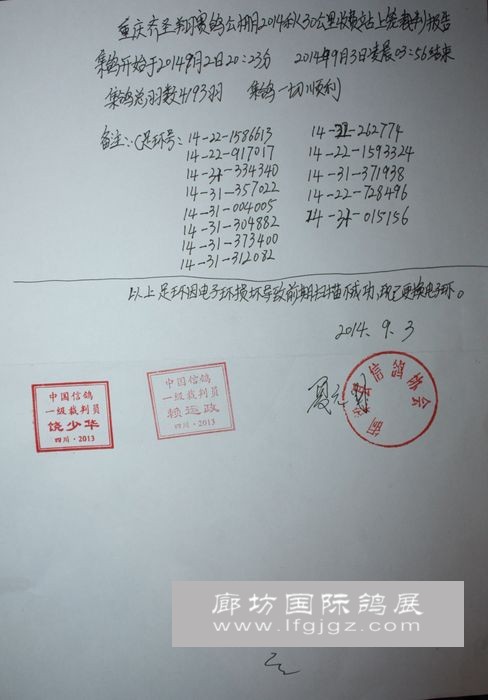 重庆齐圣翔赛鸽公棚2014秋30公里收费站上笼裁判报告
集鸽开始于2014年9月2日20:23分 2014年9月3日凌晨03:56结束
集鸽总羽数4193羽 集鸽一切顺利
备注:(足环号: 14-22-1586613 14-22-262774
14-22-917017 14-22-1593324
14-31-334340 14-31-371938
14-31-357022 14-22-728496
14-31-004005 14-31-015156
14-31-304882
14-31-373400
14-31-312082
以上足环因电子环损坏导致前期扫描不成功,现已更换电子环。
2014.9.3
中国信鸽
一级裁判员
饶少华
四川·2013
中国信鸽
一级裁判员
赖运政
四川·2013
信鸽协会
廊坊国际鸽展
www.lfgjgz.com